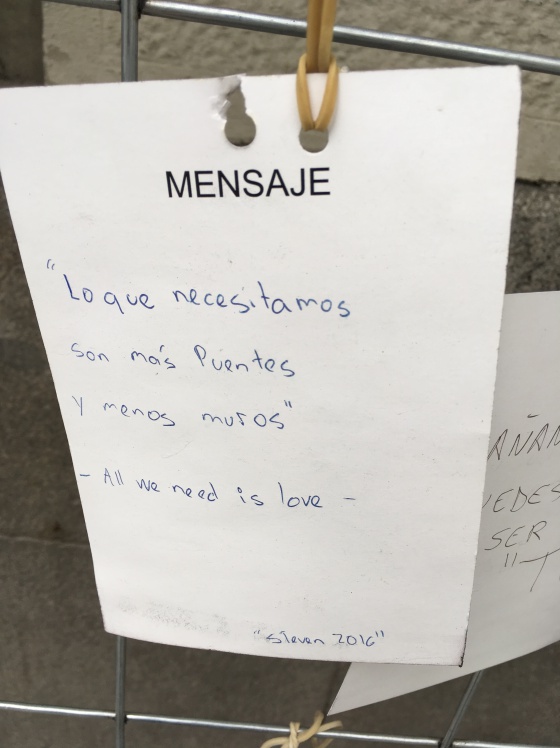 MENSAJE
"Lo que necesitamos
son más Puentes
y menos muros"
- All we need is love -
"steven 2016"
AÑAN
EDES
SER